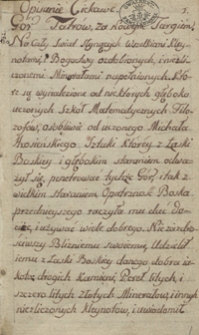 Opisanie Ciekawe. 1.
Gór Tatrów, Za Nowym Targiem
Na Cały Świat słynących Wszelkiemi Kley-
notami, Bogactwy ozdobionych, i niezli-
czonemi Minerałami napełnionych, Któ-
re są wynalezione od niektórych głęboko
uczonych Szkół Matematycznych Filo-
zofów, osobliwie od uczonego Michała
Hrosieńskiego. Sztuki Którey z Łaski
Boskiey i głębokim staraniem odważ-
ył się, penetrować tychże Gór, i tak z
wielkim staraniem Opatrzność Boska
przednieyszego raczyła mu dać
i używać wiele dobrego. Nie zaindo-
sciwszy Bliźniemu swoiemu, Udzielił
iemu z Łaski Boskiey danego dobra ie-
stże drogich Kamieni, Pereł litych, i
szczero litych Złotych Minerałow, i innych
niezliczonych Kleynotów, i uwiadomił